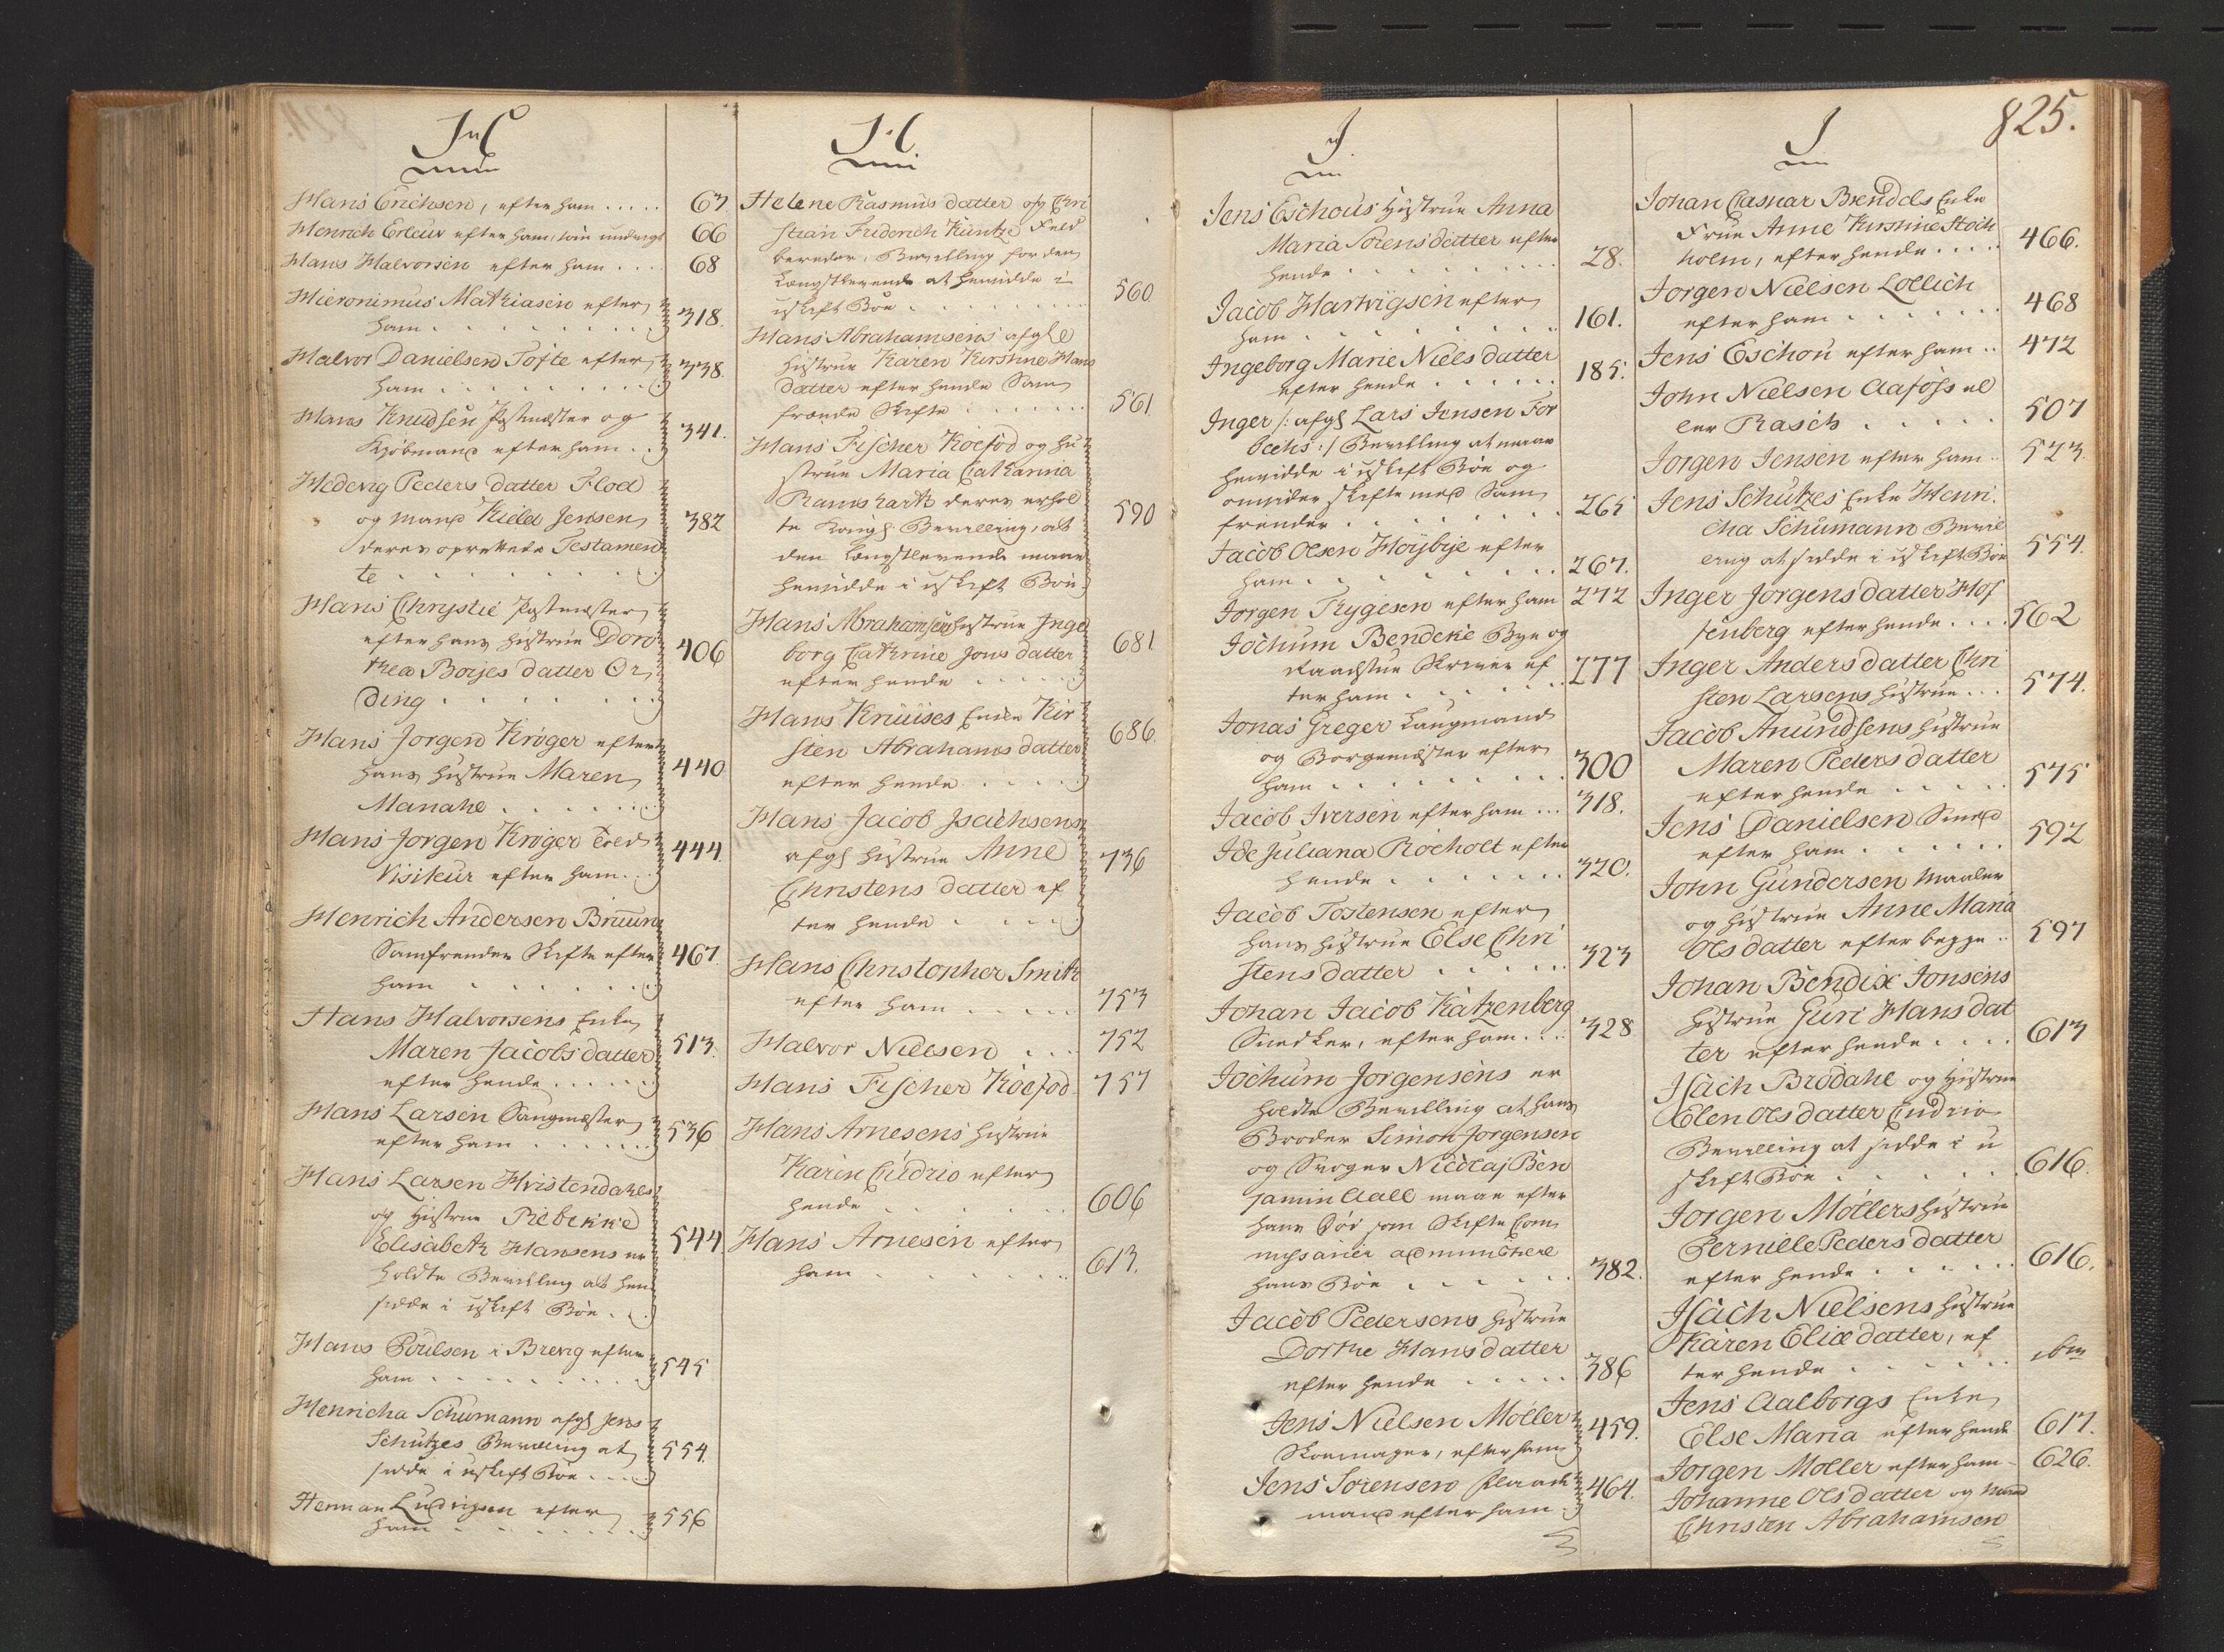 H
Hans Erichsen, efter ham ..... 67.
Henrich Erleur efter ham, 66
Hans Halvorsen efter ham .... 68
Hieronimus Mathiasen efter
ham ......... 318.
Halvor Danielsen Tofte efter
ham ......... 338.
Hans Knudsen Postmester og
Kjöbmand efter ham .. 341.
Hedevig Peders datter Flod
og Mand Kield Jensen 382
deres oprettede Testamen
te .........
Hans Chrystie Postmester
efter hans Hustrue Doro 406
thea Borjes datter Or
ding .........
Hans Jorgen Kröger efter
hans Hustrue Maren 440
Manahe ......
Hans Jorgen Kröger Told 444.
Visiteur efter ham ...
Henrich Andersen Bruun
Samfrender Skifte efter 467.
ham .......
Hans Halvorsens Enke
Maren Jacobs datter 513.
efter hende ......
Hans Larsen Sangmester
efter ham ....... 536
Hans Larsen Hvistendahls
og Hustrue Rebekke
Elisabeth Hansens er 544
holdte Bevilling at hen
sidde i uskift Boe ..
Hans Poulsen i Brevig efter
ham ......... 545
Henricha Schumann afgl Jens
Schutzes Bevilling at 554.
sidde i uskift Boe ....
Herman Ludvigsen efter
ham ........ 556
H
Helene Rasmus datter og Chri
stian Friderich Kuntze Feld
bereder, Bevilling for den
Længstlevende at hensidde i
uskift Boe ........ 560
Hans Abrahamsens afgle
Hustrue Karen Kirstine Hans
datter efter hende Sam
frænde Skifte ....... 561
Hans Fischer Koefod og Hu
strue Maria Catharina
Ramshart deres erhol 590
te Kongl: Bevilling, at
den Længstlevende maae
hensidde i uskift Boe.
Hans Abrahamsens Hustrue Inge
borg Cathrine Jons datter 681
efter hende .....
Hans Kruuses Enke Kir
sten Abrahams datter 686.
efter hende .....
Hans Jacob Isachsens
afgl Hustrue Anne 736
Christens datter ef
ter hende .....
Hans Christopher Smith
efter ham ..... 753
Halvor Nielsen ... 752
Hans Fischer Koefod 757
Hans Arnesens Hustrue
Karen Cudrio efter
hende ....... 606
Hans Arnesen efter
ham ....... 613.
825.
J
Jens Eschous Hustrue Anna
Maria Sorens datter efter
hende ........ 28.
Jacob Hartvigsen efter
ham ....... 161.
Ingeborg Marie Niels datter
efter hende ...... 185.
Inger /: afgl Lars Jensen For
bechs :/ Bevilling at maae
hensidde i uskift Boe og
omsider skifte med Sam
frender ....... 265
Jacob Olsen Hoybye efter
ham ....... 267.
Jorgen Trygesen efter ham 272
Jochum Bendeke Bye og
Raadstue Skriver ef
ter ham ...... 277
Jonas Greger Laugmand
og Borgemester efter
ham ....... 300
Jacob Iversen efter ham ... 318.
Ide Juliana Rocholt efter
hende ....... 320.
Jacob Tostensen efter
hans Hustrue Else Chri
stens datter ..... 323
Johan Jacob Katzenberg
Snedker, efter ham .... 328
Jochum Jorgensens er
holdte Bevilling at hans
Broder Simon Jorgensen
og Svoger Nicolaj Ben
jamin Aall maae efter
hans Död som Skifte Com
missarier administrere
hans Boe ...... 382.
Jacob Pedersens Hustrue
Dorthe Hans datter
efter hende ..... 386
Jens Nielsen Möller 459.
Skoemager, efter ham
Jens Sorensen Raad 464.
mand efter ham
J
Johan Casper Brendels Enke
Frue Anne Kirstine Stoch
holm, efter hende .... 466.
Jorgen Nielsen Lollich
efter ham ....... 468
Jens Eschou efter ham .. 472
John Nielsen Aafoss el
ler Rasch ..... 507
Jorgen Jensen efter ham . 523.
Jens Schutzes Enke Henri
cha Schumann Bevil
ling at sidde i uskift Boe 554.
Inger Jorgens datter Hof
fenberg efter hende .... 562
Inger Anders datter Chri
sten Larsens Hustrue ... 574.
Jacob Anundsens Hustrue
Maren Peders datter
efter hende ..... 575
Jens Danielsen Smed
efter ham ...... 592
John Gundersen Maaler
og Hustrue Anne Maria
Ols datter efter begge .. 597
Johan Bendix Jonsens
Hustrue Guri Hans dat
ter efter hende .... 613
Isach Brodahl og Hustrue
Elen Ols datter Cudrio
Bevilling at sidde i u
skift Boe ...... 616.
Jorgen Möllers Hustrue
Pernille Peders datter
efter hende ...... 616.
Isach Nielsens Hustrue
Karen Eliæ datter, ef
ter hende ...... ibm
Jens Aalborgs Enke
Else Maria efter hende 617.
Jorgen Möller efter ham - 626.
Johanne Ols datter og Mand
Christen Abrahamsen